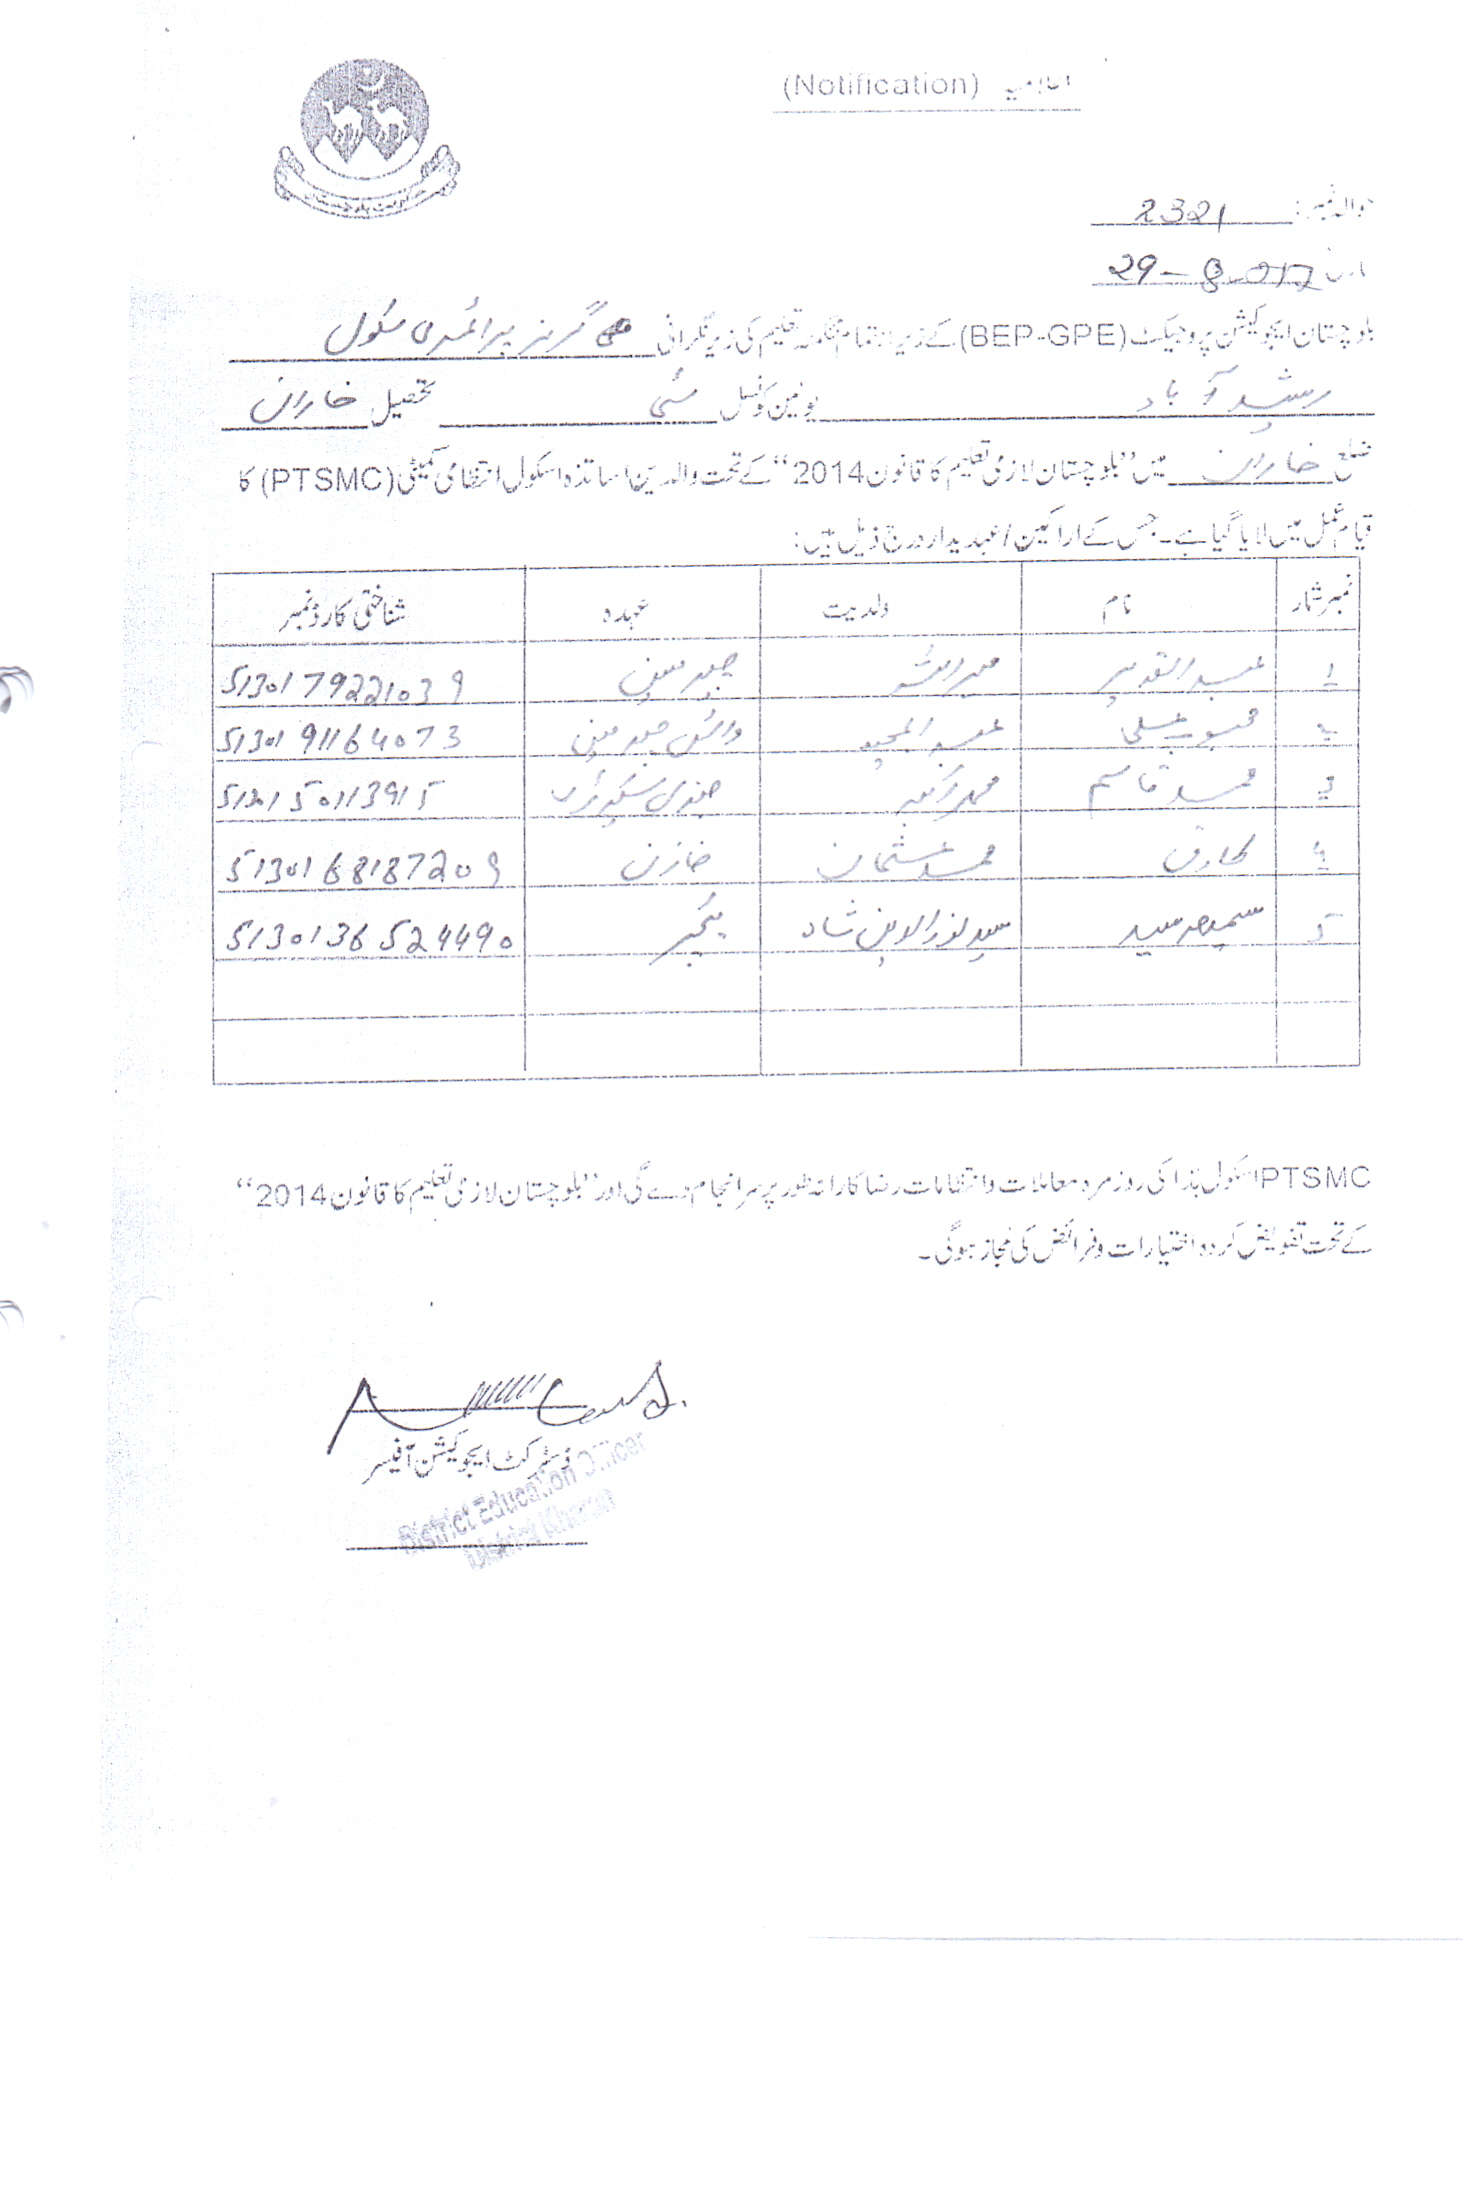 (Notification) اعلامیہ
حکومت بلوچستان
حوالہ نمبر: 2321
تاریخ 29-8-017
بلوچستان ایجوکیشن پروجیکٹ (BEP-GPE) کے زیر اہتمام محکمہ تعلیم کی زیر نگرانی گرلز پرائمری سکول
رشید آباد یونین کونسل تحصیل خاران
ضلع خاران میں "بلوچستان لازمی تعلیم کا قانون 2014" کے تحت والدین اساتذہ اسکول انتظامی کمیٹی (PTSMC) کا
قیام عمل میں لایا گیا ہے۔ جس کے اراکین / عہدیدار درج ذیل ہیں:
نمبر شمار نام ولدیت عہدہ شناختی کارڈ نمبر
1 عبدالقدیر چیئرمین 5130179221039
2 محبوب علی عبدالمجید وائس چیئرمین 5130191164073
3 محمد قاسم محمد اکبر جنرل سیکرٹری
4 طارق محمد عثمان خازن 5130168187209
5 سمیعہ سید سید نورالدین شاہ ٹیچر 5130136524490
PTSMC اسکول ہذا کی روزمرہ معاملات و انتظامات رضا کارانہ طور پر سرانجام دے گی اور "بلوچستان لازمی تعلیم کا قانون 2014"
کے تحت تفویض کردہ اختیارات و فرائض کی مجاز ہوگی۔
ڈسٹرکٹ ایجوکیشن آفیسر
District Education Officer
District Kharan